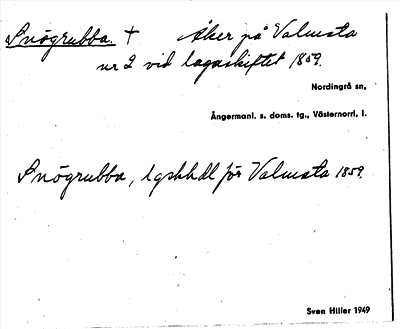 Snögrubba. † Åker på Valmsta
nr 2 vid lagaskiftet 1859.
Nordingrå sn,
Ångermanl. s. doms. tg., Västernorrl. l.
Snögrubba, lgskhdl för Valmsta 1859.
Sven Hiller 1949